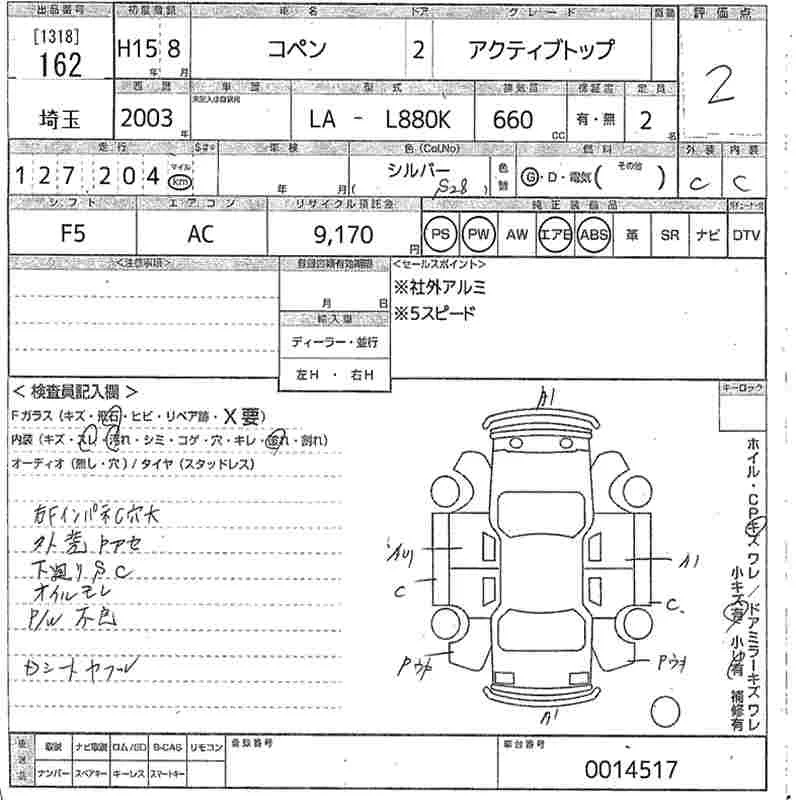 出品番号 初度登録 車名 ドア グレード 車歴 評価点
[1318]
162 H15 8 コペン 2 アクティブトップ 2
年 月
西暦 車歴 型式 排気量 保証書 定員
埼玉 2003年 LA - L880K 660cc 有・無 2名
走行 車検 色(Col.No) 燃料 外装 内装
127,204 マイル km 年 月 シルバー (S28) 色替 G・D・電気( その他 ) C C
シフト エアコン リサイクル預託金 純正装備品
F5 AC 9,170円 PS PW AW エアB ABS 革 SR ナビ DTV
<注意事項> 登録名義有効期限 <セールスポイント>
月 日 ※社外アルミ
輸入車 ※5スピード
ディーラー・並行
左H ・ 右H
< 検査員記入欄 > キーロック
Fガラス (キズ・飛石・ヒビ・リペア跡・X要)
内装 (キズ・スレ・汚れ・シミ・コゲ・穴・キレ・割れ)
オーディオ (無し・穴) / タイヤ (スタッドレス)
右FインパネC穴大
外装 アセ
下廻りSC
オイルモレ
P/W 不良
Dシートヤブレ
A1
A1
C
C
A1
ホイル・CPキズ ワレ/ドアミラーキズワレ
小キズ有 小凹有 補修有
取説 ナビ取説 ロム/SD B-CAS リモコン 登録番号 車台番号
ナンバー スペアキー キーレス スマートキー 0014517